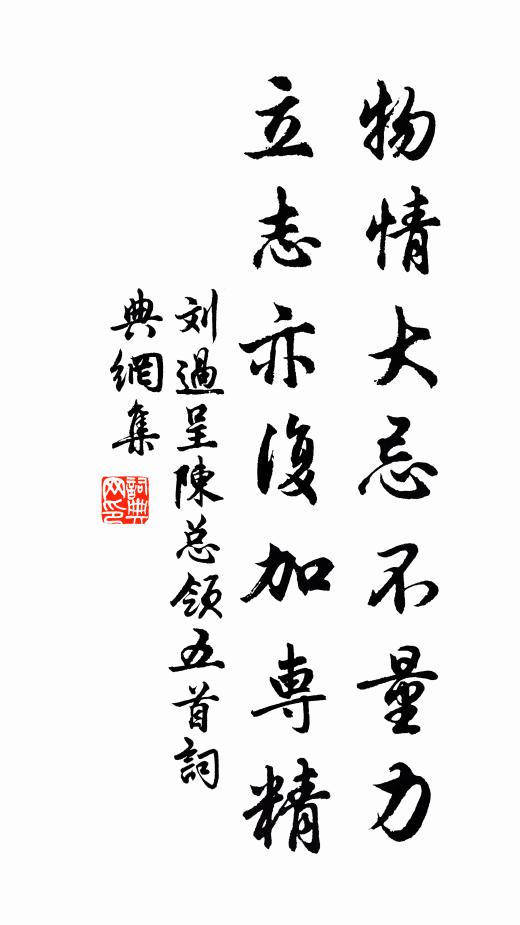 物情大忌不量力
立志亦復加専精
刘過呈陳总領五首詞
典網集
詞典
网印